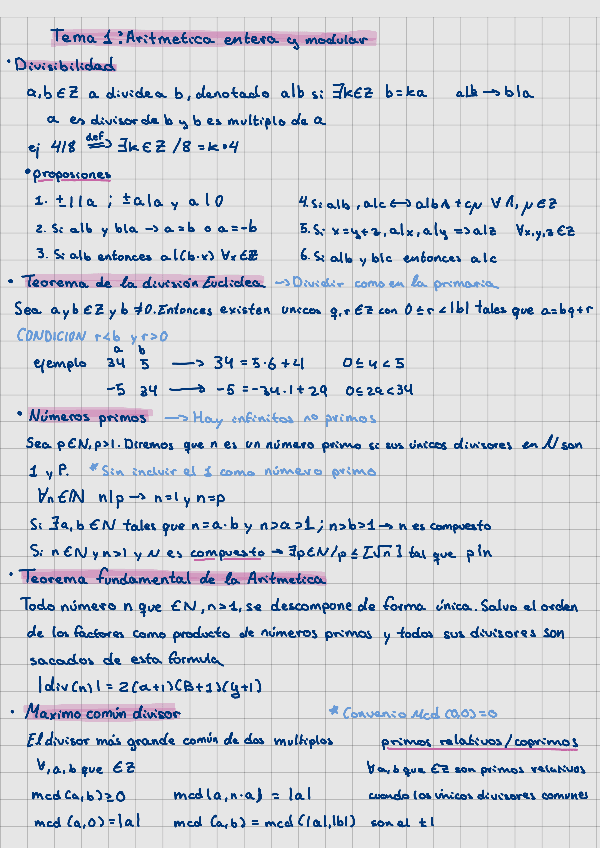 Tema 1: Aritmetica entera y modular
• Divisibilidad
a, b ∈ Z a divide a b, denotado a|b si ∃k∈Z b = ka a|b → b|a
a es divisor de b y b es multiplo de a
ej 4|8 def⟹ ∃k ∈ Z / 8 = k•4
• proposiones
1. ±1|a ; ±a|a y a|0
2. Si a|b y b|a → a=b o a=-b
3. Si a|b entonces a|(b·x) ∀x∈Z
4. Si a|b, a|c ↔ a|bλ + cμ ∀ λ, μ ∈ Z
5. Si x=y+z, a|x, a|y ⇒ a|z ∀x,y,z∈Z
6. Si a|b y b|c entonces a|c
• Teorema de la división Euclidea → Dividir como en la primaria
Sea a y b ∈ Z y b ≠0. Entonces existen unicos q, r ∈ Z con 0 ≤ r < |b| tales que a=bq+r
CONDICION r<b y r>0
a b
ejemplo 34 5 → 34 = 5·6 + 4 0 ≤ 4 < 5
-5 34 → -5 = -34·1 + 29 0≤29<34
• Números primos → Hay infinitos no primos
Sea p∈N, p>1. Diremos que n es un número primo si sus únicos divisores en N son
1 y P. * Sin incluir el 1 como número primo
∀n ∈ N n|p → n=1 y n=p
Si ∃a, b ∈ N tales que n=a·b y n>a>1 ; n>b>1 → n es compuesto
Si n∈N y n>1 y N es compuesto → ∃p∈N / p ≤ [√n] tal que p|n
• Teorema fundamental de la Aritmetica
Todo número n que ∈ N, n>1, se descompone de forma única. Salvo el orden
de los factores como producto de números primos y todos sus divisores son
sacados de esta formula
|div(n)| = 2(α+1)(β+1)(γ+1)
• Maximo común divisor * Convenio Mcd (0,0)=0
El divisor más grande común de dos multiplos
∀, a, b que ∈ Z
mcd (a,b) ≥ 0 mcd (a, n·a) = |a|
mcd (a,0) = |a| mcd (a,b) = mcd (|a|,|b|)
primos relativos/coprimos
∀a, b que ∈ Z son primos relativos
cuando los únicos divisores comunes
son el ±1